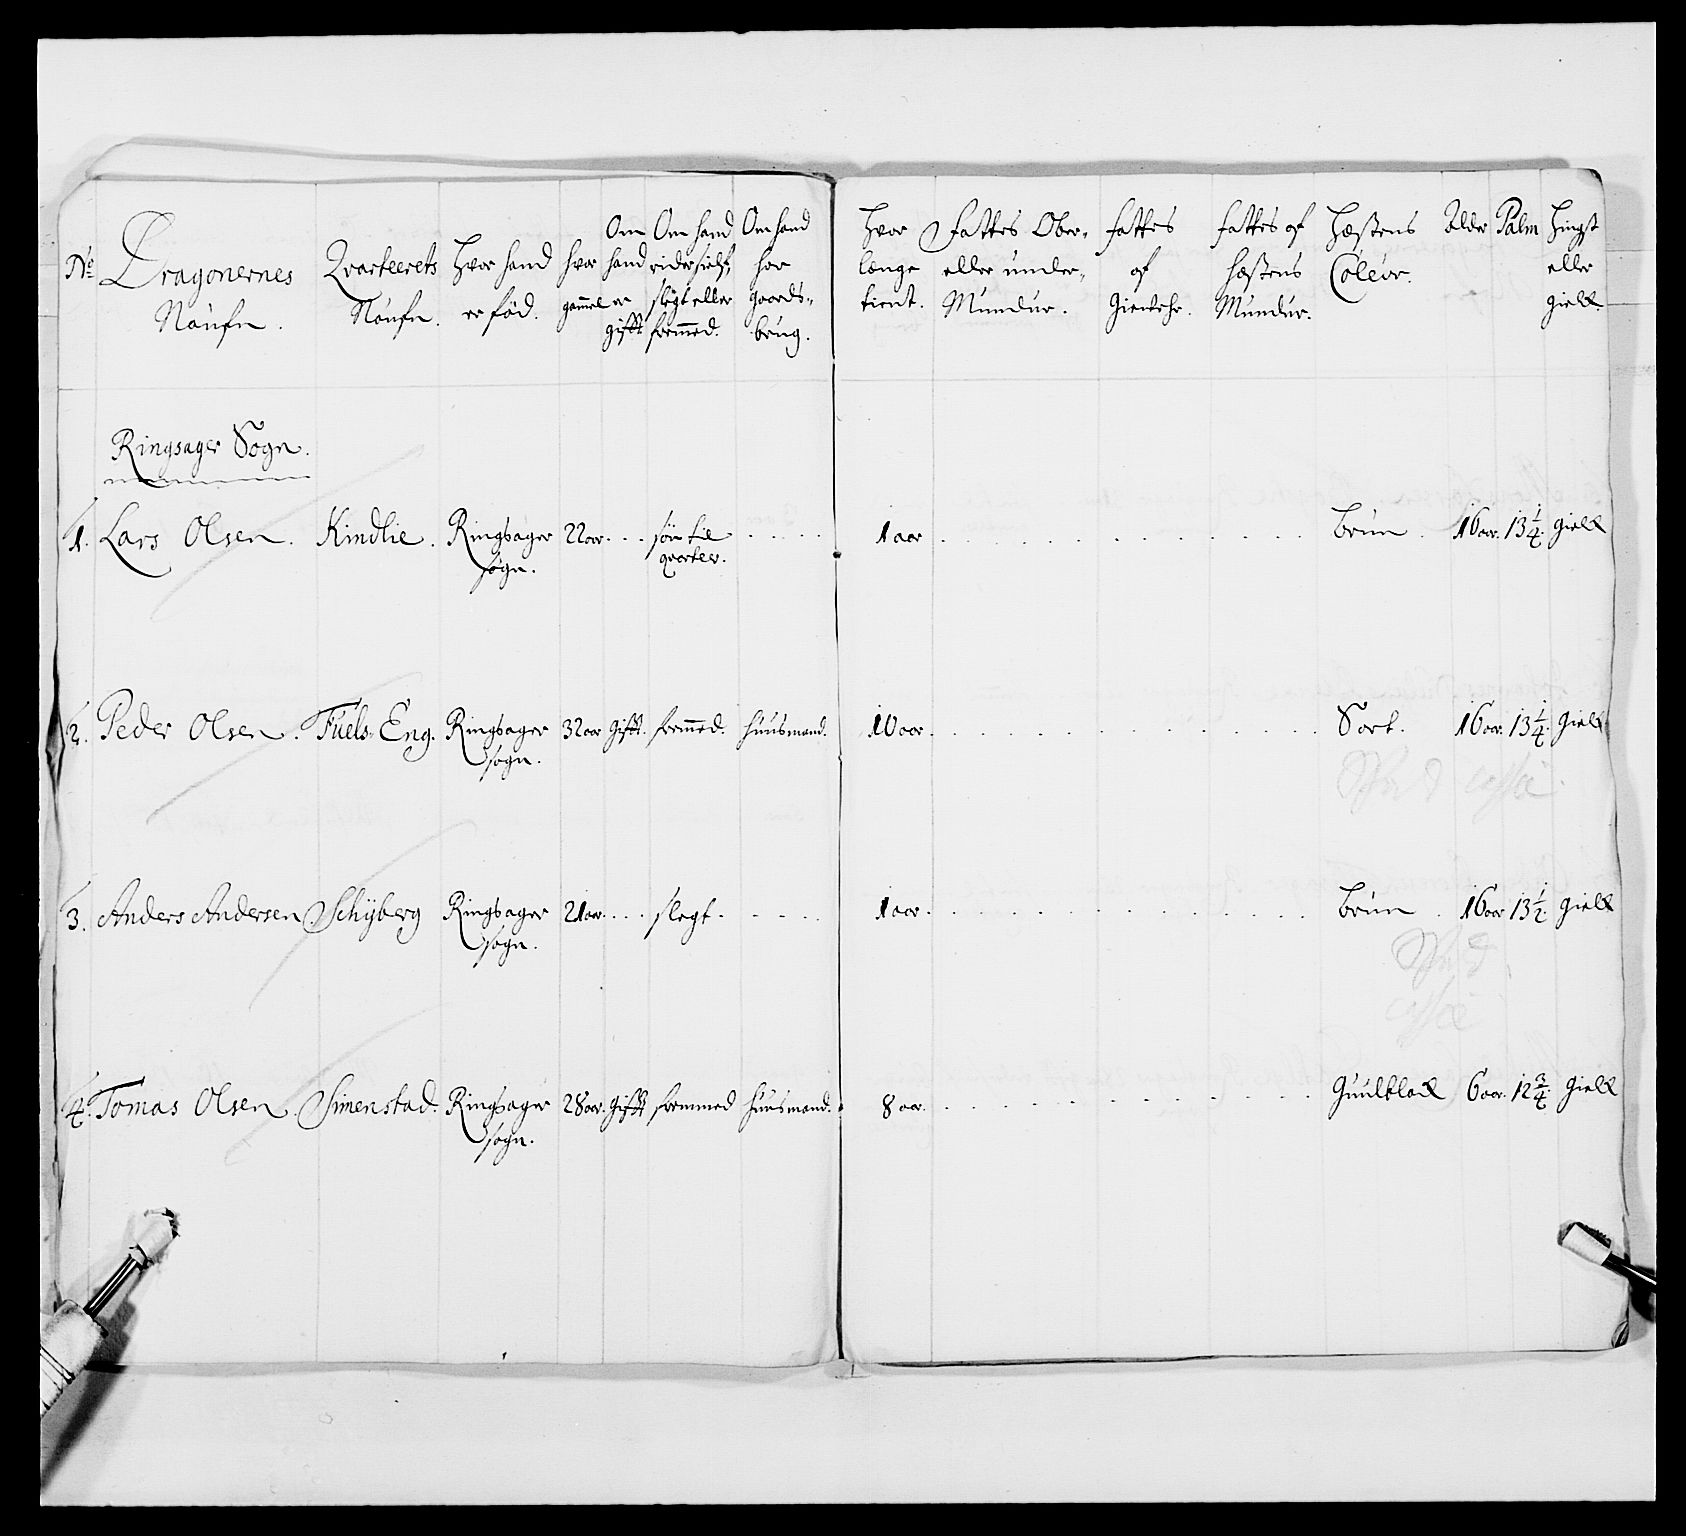 No Dragonernes Naufn. Qvarteerets Naufn. Hvor hand er fød. hvor gammel Om hand er gifft Om hand rider sielf, slegt eller fremmed. Om hand har gaards-brug. Hvor længe tient. Fattes Ober- eller under- Mundur. fattes af Giewehr. fattes af hæstens Mundur. Hæstens Coleur. Alder Palm Hingst eller gield.
Ringsager Sogn.
1. Lars Olsen. Kindlie. Ringsager 22 aar. . . søn til . . . . 1 aar . . . . brun. 16 aar. 13 1/4. gield
sogn. qvarter.
2. Peder Olsen. Fuels-Eng. Ringsager 32 aar gifft. fremmed. huusmand. 10 aar. . . . Sort. 16 aar. 13 1/4. gield
sogn.
cassé.
3. Anders Andersen Schyberg Ringsager 21 aar. . . slegt. . . . 1 aar. . . . brun. 16 aar 13 1/2. gield
sogn.
cassé
4. Tomas Olsen. Simenstad. Ringsager 28 aar. gifft fremmed huusmand. 8 aar. . . . Guulblack 6 aar. 12 3/4. gield
sogn.